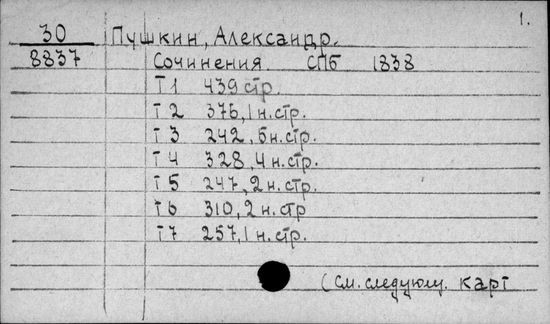 1.
30 Пушкин, Александр.
8837 Сочинения. СПБ 1838
Т 1 439 стр.
Т 2 376, 1 н. стр.
Т 3 242, 5 н. стр.
Т 4 328, 4 н. стр.
Т 5 247, 2 н. стр.
Т 6 310, 2 н. стр
Т 7 257, 1 н. стр.
(См. следующ. карт